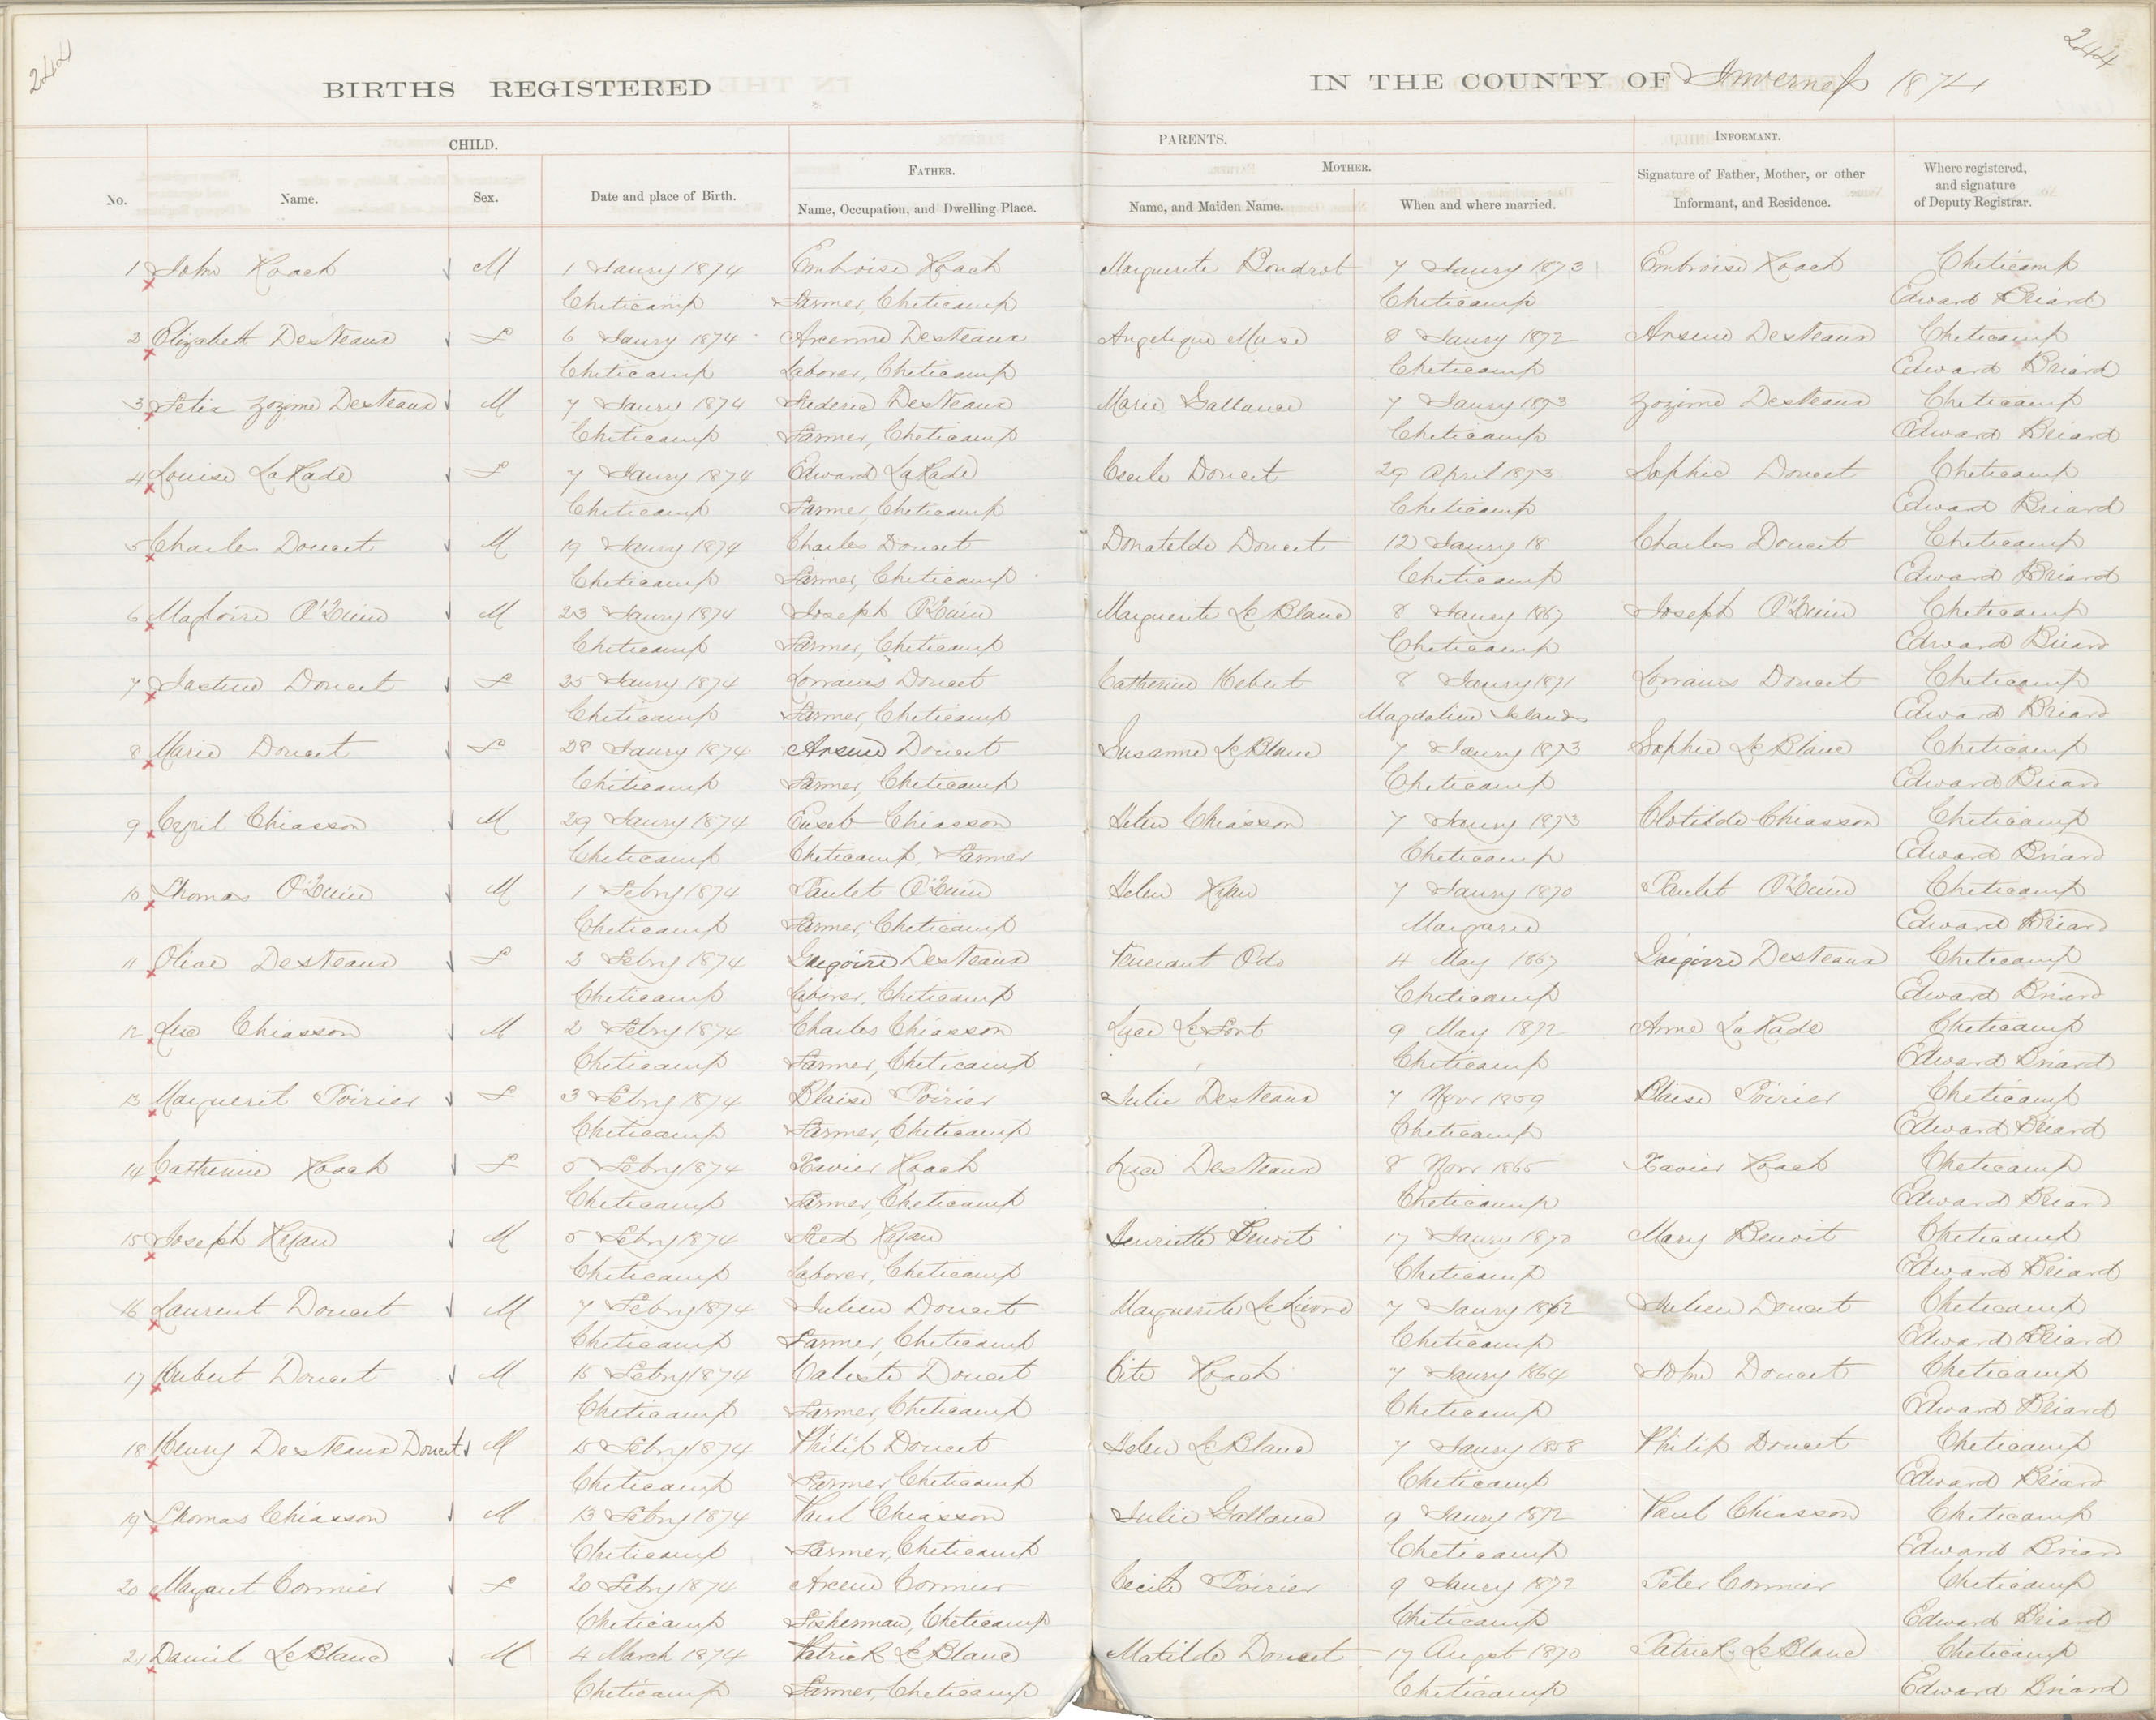 244
244
BIRTHS REGISTERED IN THE COUNTY OF Inverness 1874
CHILD. PARENTS. INFORMANT.
FATHER. MOTHER.
No. Name. Sex. Date and place of Birth. Name, Occupation, and Dwelling Place. Name, and Maiden Name. When and where married. Signature of Father, Mother, or other Informant, and Residence. Where registered, and signature of Deputy Registrar.
1 John Roach M 1 Jaury 1874 Embroise Roach Marguerite Boudrot 7 Jaury 1873 Embroise Roach Cheticamp
Cheticamp Farmer, Cheticamp Cheticamp Edward Briard
2 Elizabeth DesVeaux F 6 Jaury 1874 Arcenne DesVeaux Angelique Muse 8 Jaury 1872 Arsene DesVeaux Cheticamp
Cheticamp Laborer, Cheticamp Cheticamp Edward Briard
3 Felix Zozime DesVeaux M 7 Jaury 1874 Frederic DesVeaux Marie Gallance 7 Jaury 1873 Zozime DesVeaux Cheticamp
Cheticamp Farmer, Cheticamp Cheticamp Edward Briard
4 Louise LaRade F 7 Jaury 1874 Edward LaRade Cecile Doucet 29 April 1873 Sophie Doucet Cheticamp
Cheticamp Farmer, Cheticamp Cheticamp Edward Briard
5 Charles Doucet M 19 Jaury 1874 Charles Doucet Donatilde Doucet 12 Jaury 18 Charles Doucet Cheticamp
Cheticamp Farmer, Cheticamp Cheticamp Edward Briard
6 Magloire O'Quin M 23 Jaury 1874 Joseph O'Quin Marguerite LeBlanc 8 Jaury 1867 Joseph O'Quin Cheticamp
Cheticamp Farmer, Cheticamp Cheticamp Edward Briard
7 Justine Doucet F 25 Jaury 1874 Lorraines Doucet Catherine Hebert 8 Jaury 1871 Lorraines Doucet Cheticamp
Cheticamp Farmer, Cheticamp Magdaline Islands Edward Briard
8 Marie Doucet F 28 Jaury 1874 Arsene Doucet Susanne LeBlanc 7 Jaury 1873 Sophie LeBlanc Cheticamp
Cheticamp Farmer, Cheticamp Cheticamp Edward Briard
9 Cyril Chiasson M 29 Jaury 1874 Euseb Chiasson Helen Chiasson 7 Jaury 1873 Clotilde Chiasson Cheticamp
Cheticamp Cheticamp, Farmer Cheticamp Edward Briard
10 Thomas O'Quin M 1 Febry 1874 Paulet O'Quin Helen Ryan 7 Jaury 1870 Paulet O'Quin Cheticamp
Cheticamp Farmer, Cheticamp Margarie Edward Briard
11 Olive DesVeaux F 2 Febry 1874 Gregoire DesVeaux 4 May 1867 Gregoire DesVeaux Cheticamp
Cheticamp Laborer, Cheticamp Cheticamp Edward Briard
12 Luc Chiasson M 2 Febry 1874 Charles Chiasson Luce LeFort 9 May 1872 Anne LaRade Cheticamp
Cheticamp Farmer, Cheticamp Cheticamp Edward Briard
13 Marguerit Poirier F 3 Febry 1874 Blaise Poirier Julie DesVeaux 7 Novr 1859 Blaise Poirier Cheticamp
Cheticamp Farmer, Cheticamp Cheticamp Edward Briard
14 Catherine Roach F 5 Febry 1874 Xavier Roach Luce DesVeaux 8 Novr 1865 Xavier Roach Cheticamp
Cheticamp Farmer, Cheticamp Cheticamp Edward Briard
15 Joseph Ryan M 5 Febry 1874 Fred Ryan Henriette Benoit 17 Jaury 1870 Mary Benoit Cheticamp
Cheticamp Laborer, Cheticamp Cheticamp Edward Briard
16 Laurent Doucet M 7 Febry 1874 Julien Doucet Marguerite LeLievre 7 Jaury 1862 Julien Doucet Cheticamp
Cheticamp Farmer, Cheticamp Cheticamp Edward Briard
17 Hubert Doucet M 15 Febry 1874 Calixte Doucet Vite Roach 7 Jaury 1864 John Doucet Cheticamp
Cheticamp Farmer, Cheticamp Cheticamp Edward Briard
18 Henry DesVeaux Doucet M 15 Febry 1874 Philip Doucet Helen LeBlanc 7 Jaury 1858 Philip Doucet Cheticamp
Cheticamp Farmer, Cheticamp Cheticamp Edward Briard
19 Thomas Chiasson M 13 Febry 1874 Paul Chiasson Julie Gallance 9 Jaury 1872 Paul Chiasson Cheticamp
Cheticamp Farmer, Cheticamp Cheticamp Edward Briard
20 Margaut Cormier F 20 Febry 1874 Arcene Cormier Cecile Poirier 9 Jaury 1872 Peter Cormier Cheticamp
Cheticamp Fisherman, Cheticamp Cheticamp Edward Briard
21 Daniel LeBlanc M 4 March 1874 Patrick LeBlanc Matilde Doucet 17 Augst 1870 Patrick LeBlanc Cheticamp
Cheticamp Farmer, Cheticamp Cheticamp Edward Briard